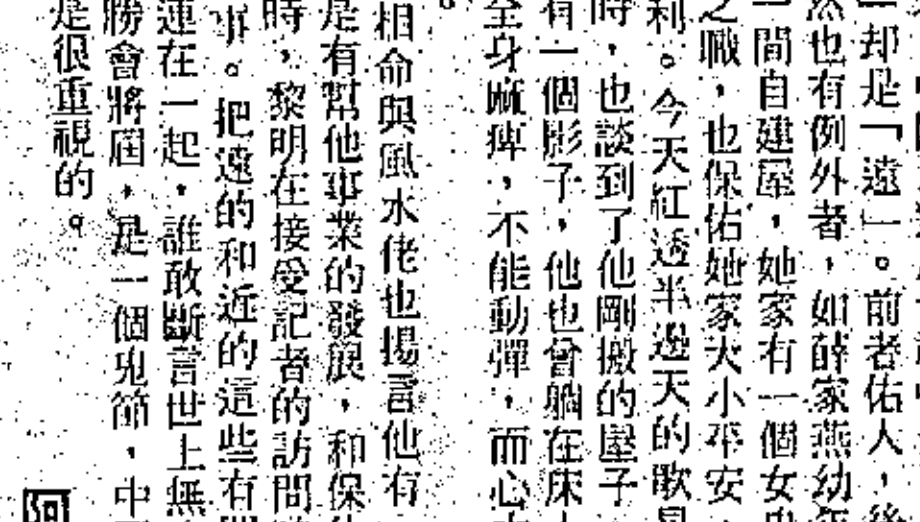 却是「遠」。前者佑人，後
然也有例外者，如薛家燕幼年
一間自建屋，她家有一個女
之職，也保佑她家大小平安，
利。今天紅透半邊天的歌星
時，也談到了他剛搬的屋子
有一個影子，他也曾躺在床
全身麻痺，不能動彈，而心
。
相命與風水佬也揚言他有
是有幫他事業的發展，和保
時，黎明在接受記者的訪問
事。把遠的和近的這些有
連在一起，誰敢斷言世上無
勝會將屆，是一個鬼節，中
是很重視的。